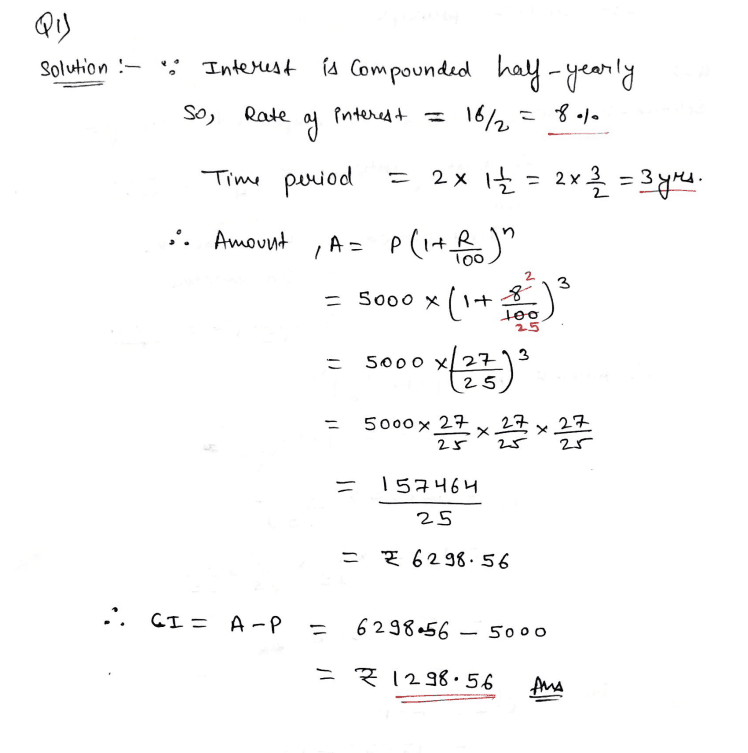 Q1)
Solution :- ∵ Interest is Compounded half-yearly
So, Rate of interest = 16/2 = 8%
Time period = 2 × 1 1/2 = 2 × 3/2 = 3 yrs.
∴ Amount, A = P(1+R/100)^n
= 5000 × (1 + 8/100)^3 2 25
= 5000 × (27/25)^3
= 5000 × 27/25 × 27/25 × 27/25
= 157464/25
= ₹ 6298.56
∴ CI = A-P = 6298.56 - 5000
= ₹ 1298.56 Ans